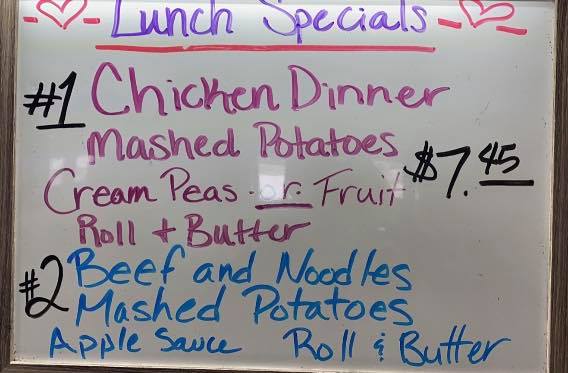 Lunch Specials
#1 Chicken Dinner
Mashed Potatoes
$7.45
Cream Peas - or - Fruit
Roll + Butter
#2 Beef and Noodles
Mashed Potatoes
Apple Sauce Roll & Butter